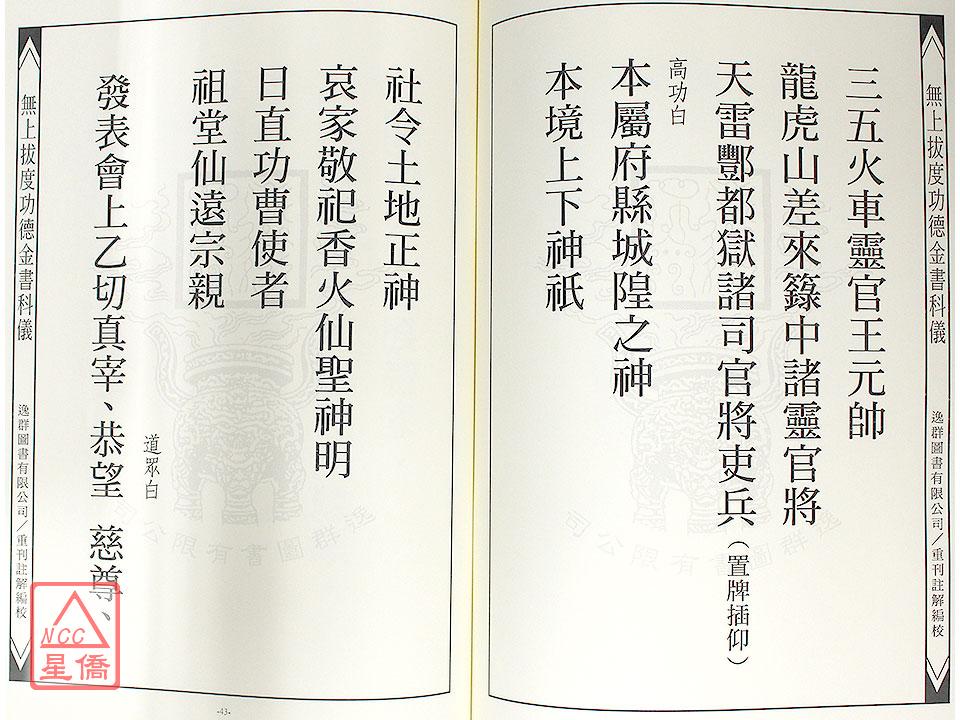 無上拔度功德金書科儀
逸群圖書有限公司／重刊註解編校
三五火車靈官王元帥
龍虎山差來籙中諸靈官將
天雷酆都獄諸司官將吏兵（置牌插仰）
高功白
本屬府縣城隍之神
本境上下神祇
社令土地正神
哀家敬祀香火仙聖神明
日直功曹使者
祖堂仙遠宗親
道眾白
發表會上乙切真宰、恭望 慈尊、
無上拔度功德金書科儀
逸群圖書有限公司／重刊註解編校
-43-
逸群圖書有限公司
逸群圖書有限公司
NCC
星僑